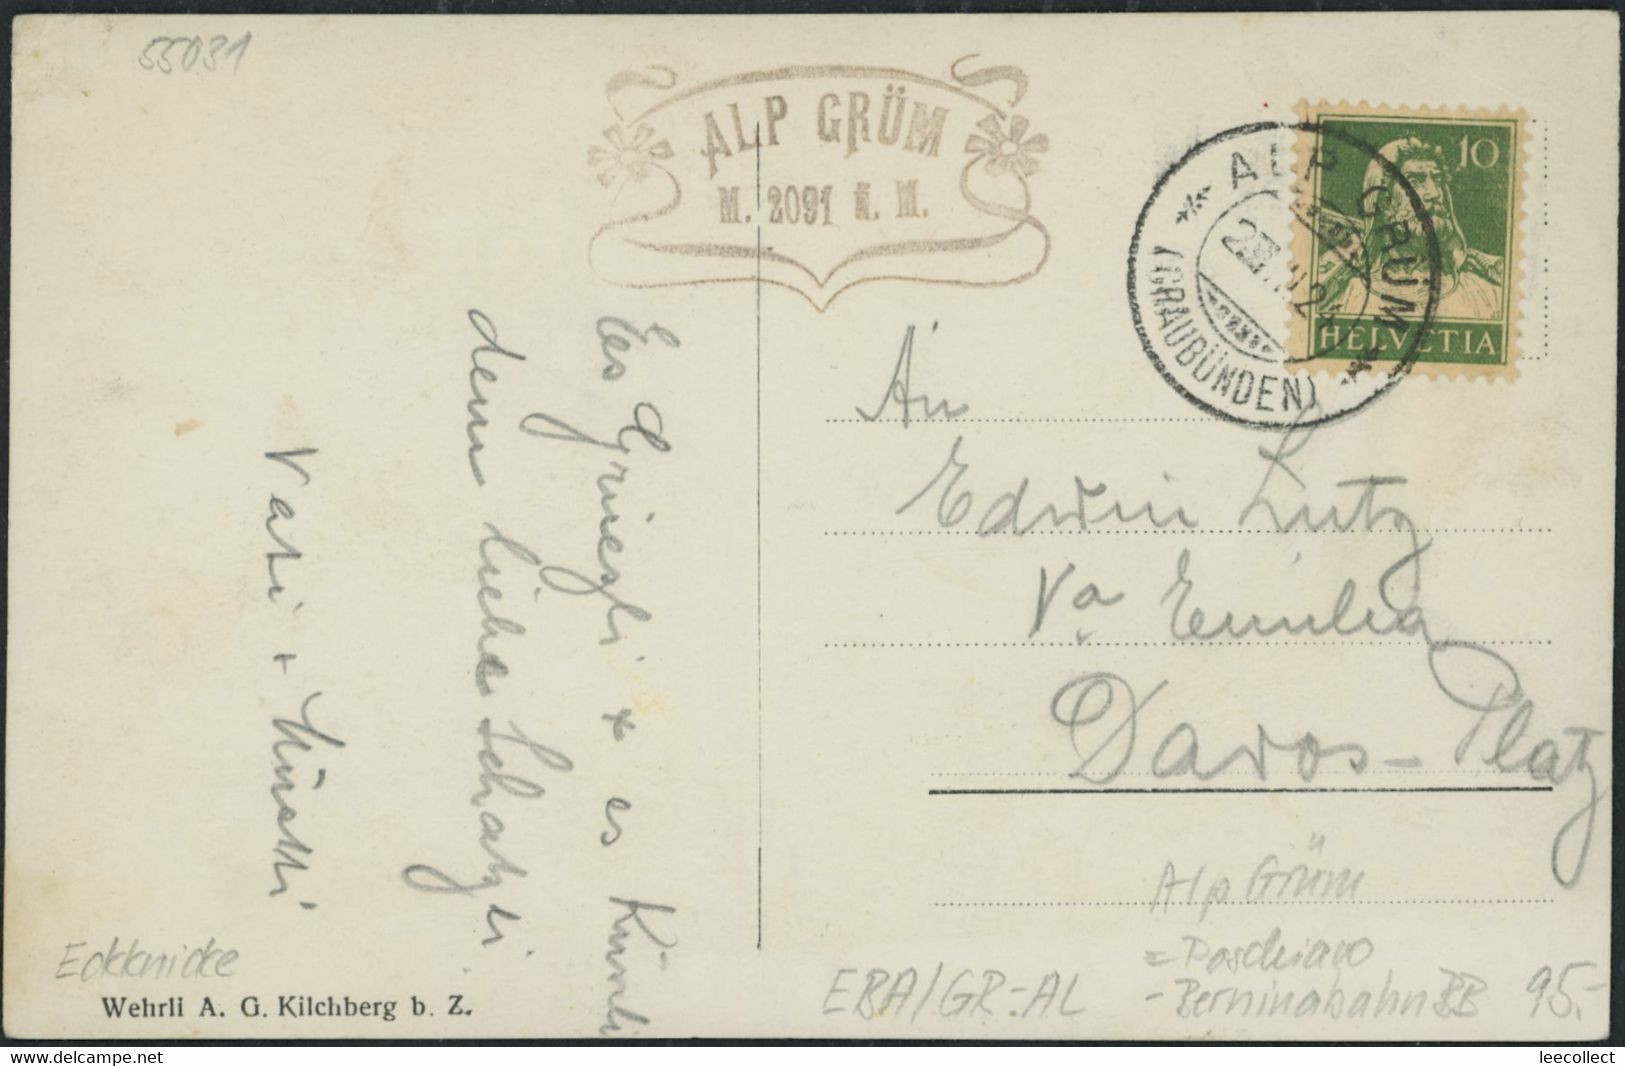 55031
ALP GRÜM
M. 2091 ü. M.
10
HELVETIA
* ALP GRÜM *
(GRAUBÜNDEN)
Es Grüezli + es Küssli
dem liebe Schatzli
Vati + Muetti
An
Edwin Lutz
Va Emilia
Davos-Platz
Alp Grüm
= Poschiavo
EBA/GR-.AL - Berninabahn BB 95.-
Eckknicke
Wehrli A. G. Kilchberg b. Z.
delcampe.net
leecollect